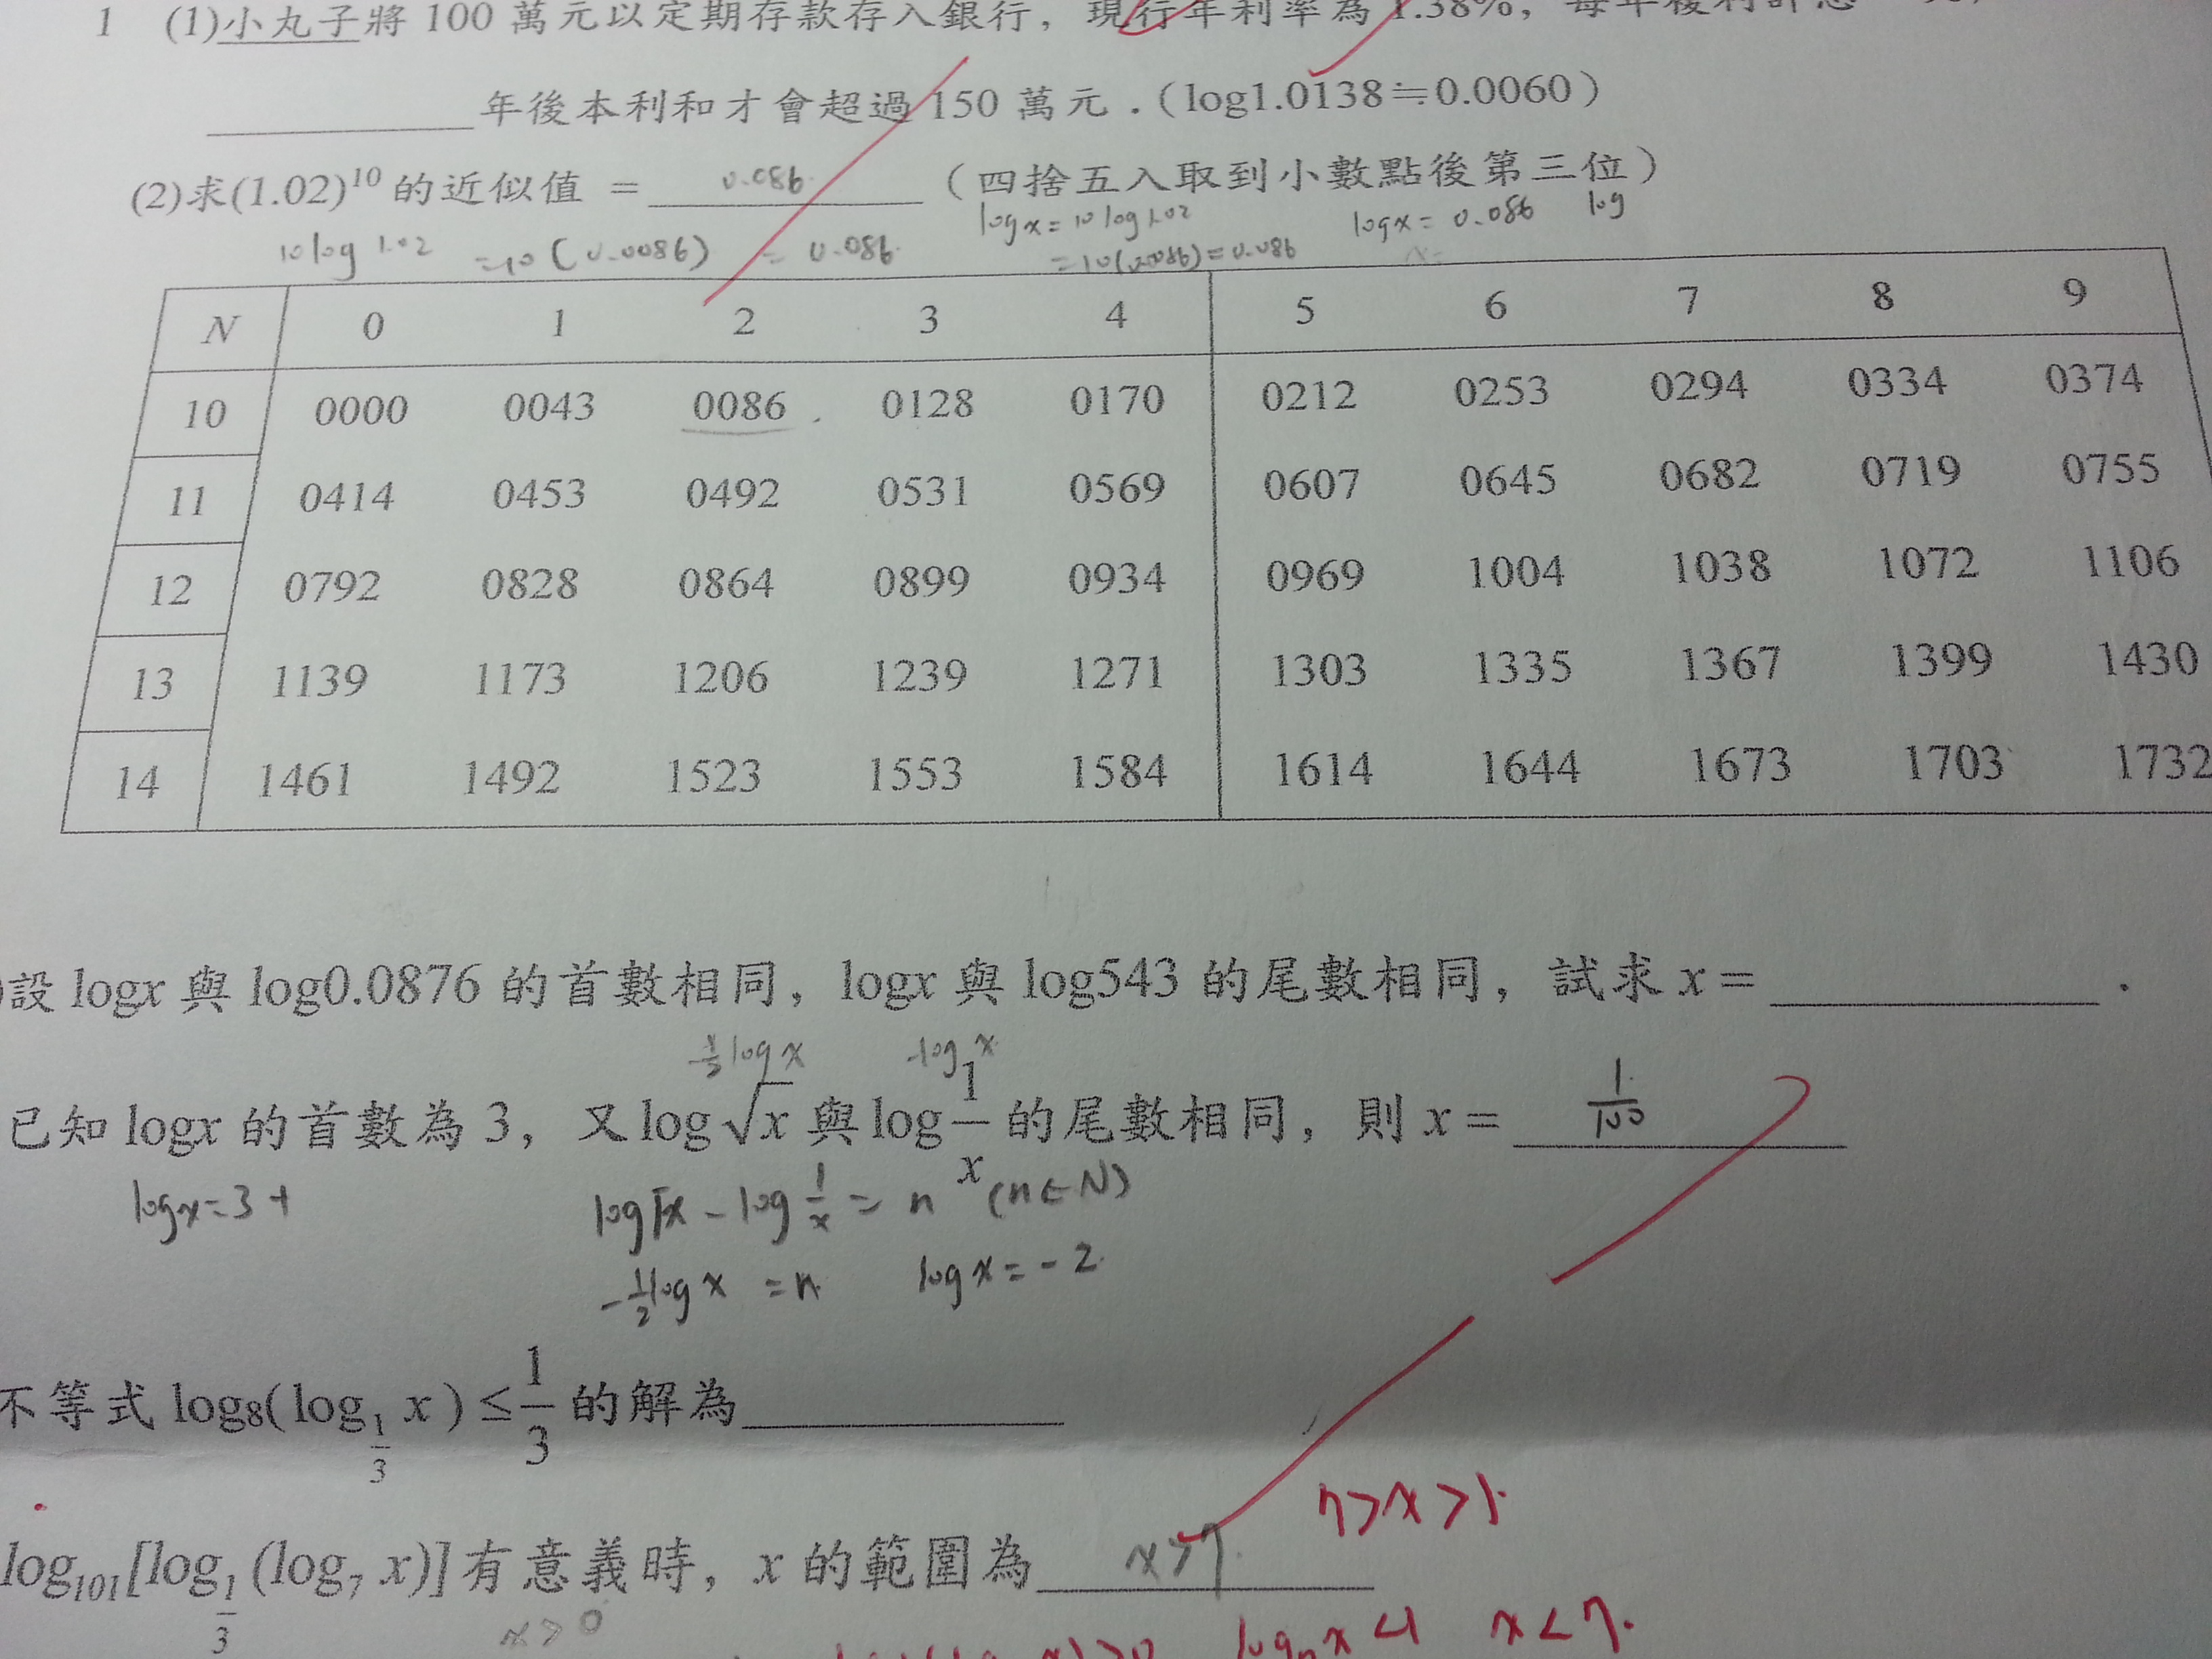 1 (1)小丸子將 100 萬元以定期存款存入銀行，現行年利率為 1.38%，每年複利計息
年後本利和才會超過 150 萬元．(log1.0138≒0.0060)
(2)求(1.02)^10 的近似值 = 0.086 (四捨五入取到小數點後第三位)
10 log 1.02 = 10 (0.0086) = 0.086
log x = 10 log 1.02
= 10(0.0086) = 0.086
log x = 0.086 log
N 0 1 2 3 4 5 6 7 8 9
10 0000 0043 0086 0128 0170 0212 0253 0294 0334 0374
11 0414 0453 0492 0531 0569 0607 0645 0682 0719 0755
12 0792 0828 0864 0899 0934 0969 1004 1038 1072 1106
13 1139 1173 1206 1239 1271 1303 1335 1367 1399 1430
14 1461 1492 1523 1553 1584 1614 1644 1673 1703 1732
設 logx 與 log0.0876 的首數相同，logx 與 log543 的尾數相同，試求 x = ．
log x -log x
已知 logx 的首數為 3，又 log√x 與 log 1/x 的尾數相同，則 x = 1/100
log x = 3 +
log √x - log 1/x = n (n∈N)
-1/2 log x = n log x = -2
不等式 log₈(log_{1/3} x) ≤ 1/3 的解為
7 > x > 1
log₁₀₁[log_{1/3} (log₇ x)] 有意義時，x 的範圍為 x > 7
x > 0
log₇ x < 1 x < 7